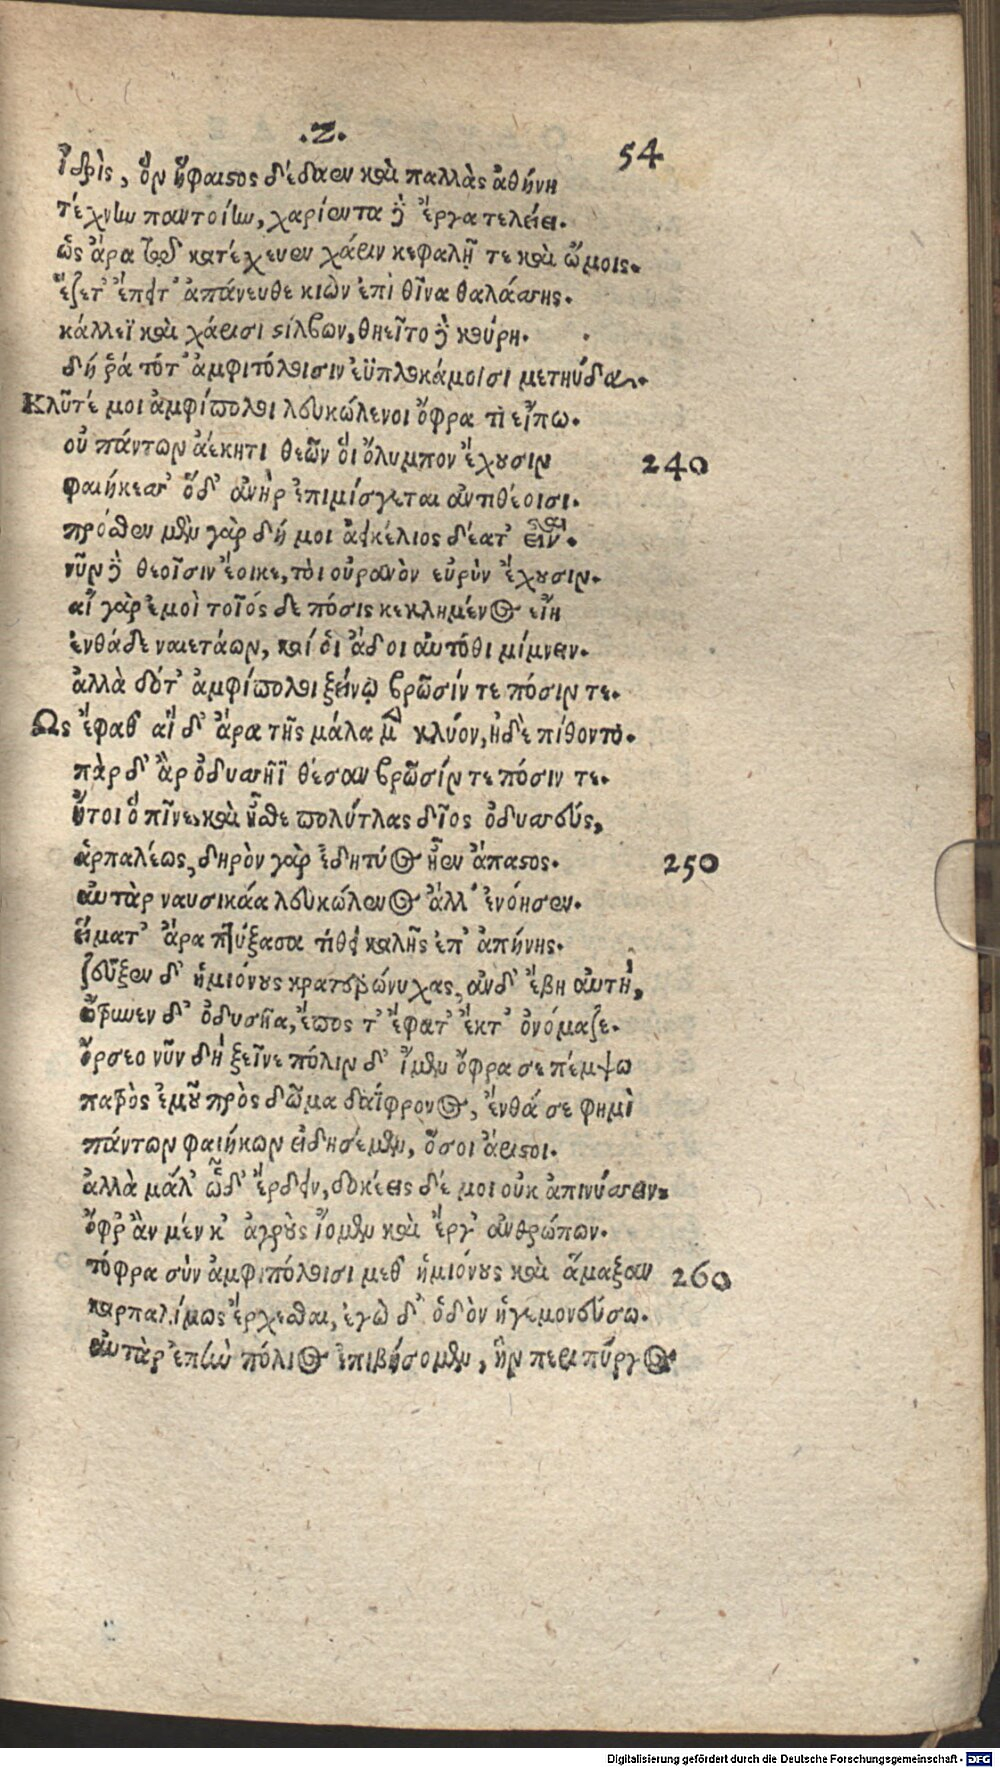 .Ζ.
54
ἴδρις, ὃν ἥφαιστος δέδαεν καὶ παλλὰς ἀθήνη
τέχνην παντοίην, χαρίεντα δὲ ἔργα τελείει.
ὣς ἄρα τῷ κατέχευεν χάριν κεφαλῇ τε καὶ ὤμοις.
ἕζετ' ἔπειτ' ἀπάνευθε κιὼν ἐπὶ θῖνα θαλάσσης.
κάλλεϊ καὶ χάρισι στίλβων, θηεῖτο δὲ κούρη.
δή ῥά τότ' ἀμφιπόλοισιν ἐϋπλοκάμοισι μετηύδα.
Κλῦτέ μοι ἀμφίπολοι λευκώλενοι ὄφρα τὶ εἴπω.
οὐ πάντων ἀέκητι θεῶν ὁὶ ὄλυμπον ἔχουσιν
240
φαιήκεσσ' ὅδ' ἀνὴρ ἐπιμίσγεται ἀντιθέοισι.
πρόσθεν μὲν γὰρ δή μοι ἀεικέλιος δέατ' εἶναι.
νῦν δὲ θεοῖσιν ἔοικε, τὸι οὐρανὸν εὐρὺν ἔχουσιν.
αἲ γὰρ ἐμοὶ τοῖός δε πόσις κεκλημένος εἴη
ἐνθάδε ναιετάων, καί ὁἱ ἅδοι αὐτόθι μίμνειν.
ἀλλὰ δότ' ἀμφίπολοι ξείνῳ βρῶσίν τε πόσιν τε.
Ως ἔφαθ' αἵ δ' ἄρα τῆς μάλα μὲν κλύον, ἠδὲ πίθοντο.
πὰρ δ' ἂρ ὀδυσσῆϊ θέσαν βρῶσίν τε πόσιν τε.
ἤτοι ὁ πῖνε καὶ ἦσθε πολύτλας δῖος ὀδυσσεύς,
ἁρπαλέως, δηρὸν γὰρ ἐδητύος ἦεν ἄπαστος.
250
αὐτὰρ ναυσικάα λευκώλενος ἄλλ' ἐνόησεν.
εἵματ' ἄρα πτύξασα τίθει καλῆς ἐπ' ἀπήνης.
ζεῦξεν δ' ἡμιόνους κρατερώνυχας, ἀνδ' ἔβη αὐτή,
ὄτρυνεν δ' ὀδυσῆα, ἔπος τ' ἔφατ' ἔκτ' ὀνόμαζε.
ὄρσεο νῦν δὴ ξεῖνε πόλιν δ' ἴμεν ὄφρα σε πέμψω
πατρὸς ἐμοῦ πρὸς δῶμα δαΐφρονος, ἔνθά σε φημὶ
πάντων φαιήκων εἰδησέμεν, ὅσοι ἄριστοι.
ἀλλὰ μάλ' ὧδ' ἔρδειν, δοκέεις δέ μοι οὐκ ἀπινύσσειν.
ὄφρ' ἂν μέν κ' ἀγροὺς ἴομεν καὶ ἔργ' ἀνθρώπων.
τόφρα σὺν ἀμφιπόλοισι μεθ' ἡμιόνους καὶ ἅμαξαν
260
καρπαλίμως ἔρχεσθαι, ἐγὼ δ' ὁδὸν ἡγεμονεύσω.
αὐτὰρ ἐπὴν πόλιος ἐπιβήσομεν, ἣν περι πύργος
Digitalisierung gefördert durch die Deutsche Forschungsgemeinschaft - DFG